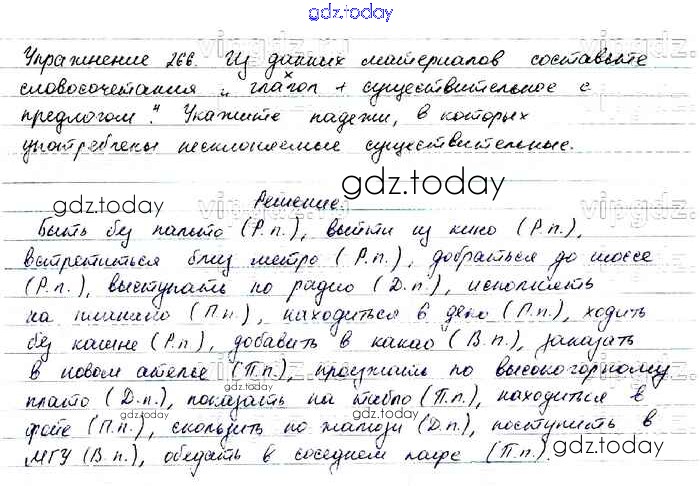 gdz.today
Упражнение 266. Из данных материалов составьте
словосочетания „глагол + существительное с
предлогом". Укажите падежи, в которых
употреблены несклоняемые существительные.
gdz.today
gdz.today
Решение.
Быть без пальто (Р.п.), выйти из кино (Р.п.),
встретиться близ метро (Р.п.), добраться до шоссе
(Р.п.), выступать по радио (Д.п.), исполнять
на пианино (П.п.), находиться в депо (П.п.), ходить
без кашне (Р.п.), добавить в какао (В.п.), заказать
в новом ателье (П.п.), проезжать по высокогорному
плато (Д.п.), показать на табло (П.п.), находиться в
gdz.today
фойе (П.п.), скользить по жалюзи (Д.п.), поступить в
МГУ (В.п.), обедать в соседнем кафе (П.п.).
gdz.today